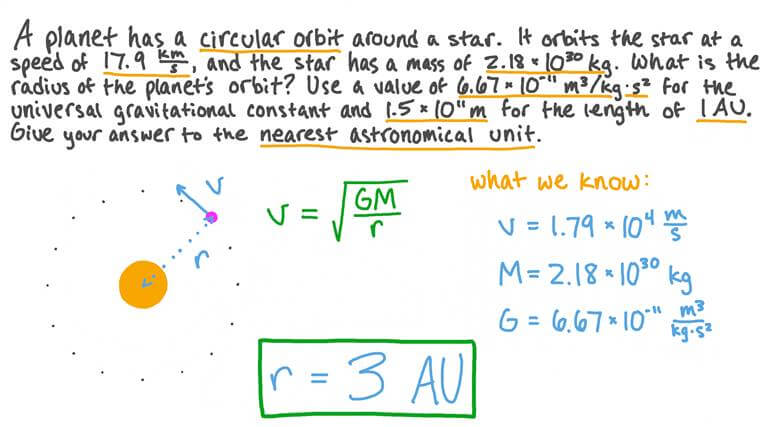 A planet has a circular orbit around a star. It orbits the star at a
speed of 17.9 km/s, and the star has a mass of 2.18 × 10³⁰ kg. What is the
radius of the planet's orbit? Use a value of 6.67 × 10⁻¹¹ m³/kg·s² for the
universal gravitational constant and 1.5 × 10¹¹ m for the length of 1 AU.
Give your answer to the nearest astronomical unit.
what we know:
v
v = √(GM/r)
r
v = 1.79 × 10⁴ m/s
M = 2.18 × 10³⁰ kg
G = 6.67 × 10⁻¹¹ m³/kg·s²
r = 3 AU